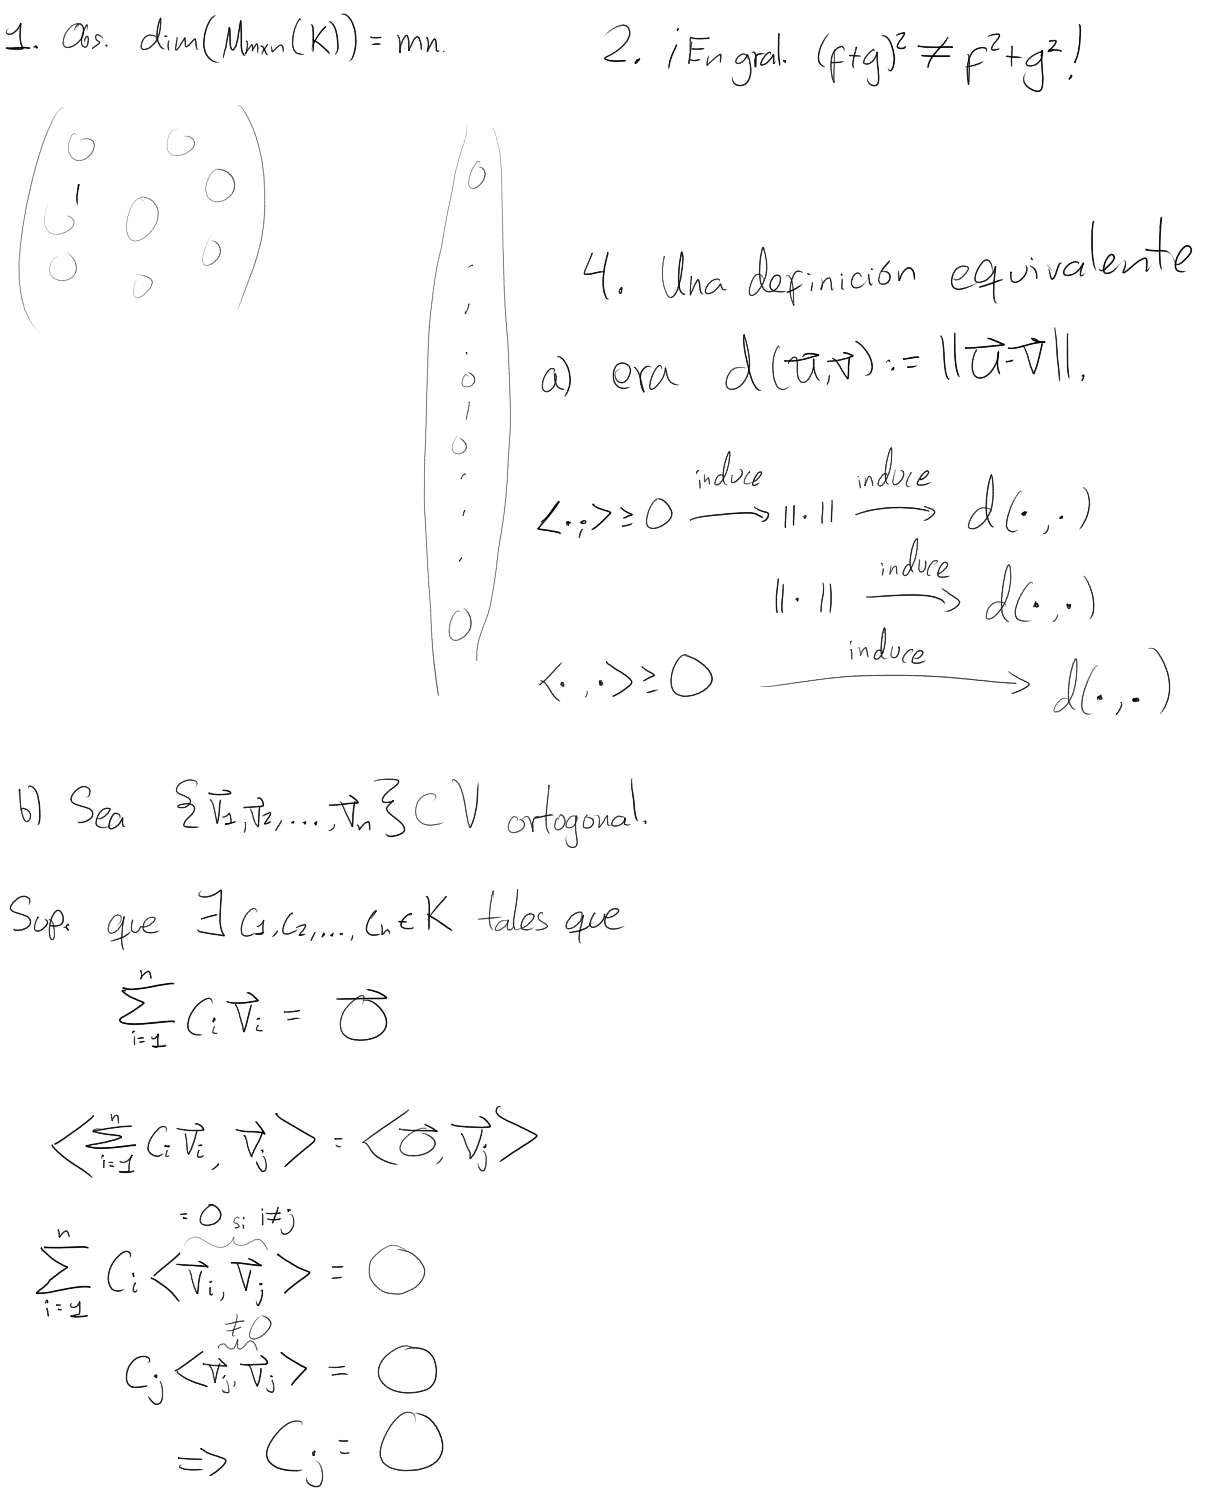 1. Obs. dim(M_{m×n}(K)) = mn.
2. ¡En gral. (f+g)² ≠ f²+g²!
0 0
1 0
0 0
0 0
0
0
.
.
.
0
1
0
.
.
.
0
4. Una definición equivalente
a) era d(u⃗,v⃗) := ||u⃗-v⃗||.
<·,·> ≥ 0 induce → ||·|| induce → d(·,·)
||·|| induce → d(·,·)
<·,·> ≥ 0 induce → d(·,·)
b) Sea {v⃗₁,v⃗₂,...,v⃗ₙ} ⊂ V ortogonal.
Sup. que ∃ c₁,c₂,...,cₙ ∈ K tales que
∑_{i=1}^{n} cᵢ v⃗ᵢ = 0⃗
<∑_{i=1}^{n} cᵢ v⃗ᵢ, v⃗ⱼ> = <0⃗, v⃗ⱼ>
= 0 si i≠j
∑_{i=1}^{n} cᵢ <v⃗ᵢ, v⃗ⱼ> = 0
≠0
cⱼ <v⃗ⱼ, v⃗ⱼ> = 0
=> cⱼ = 0